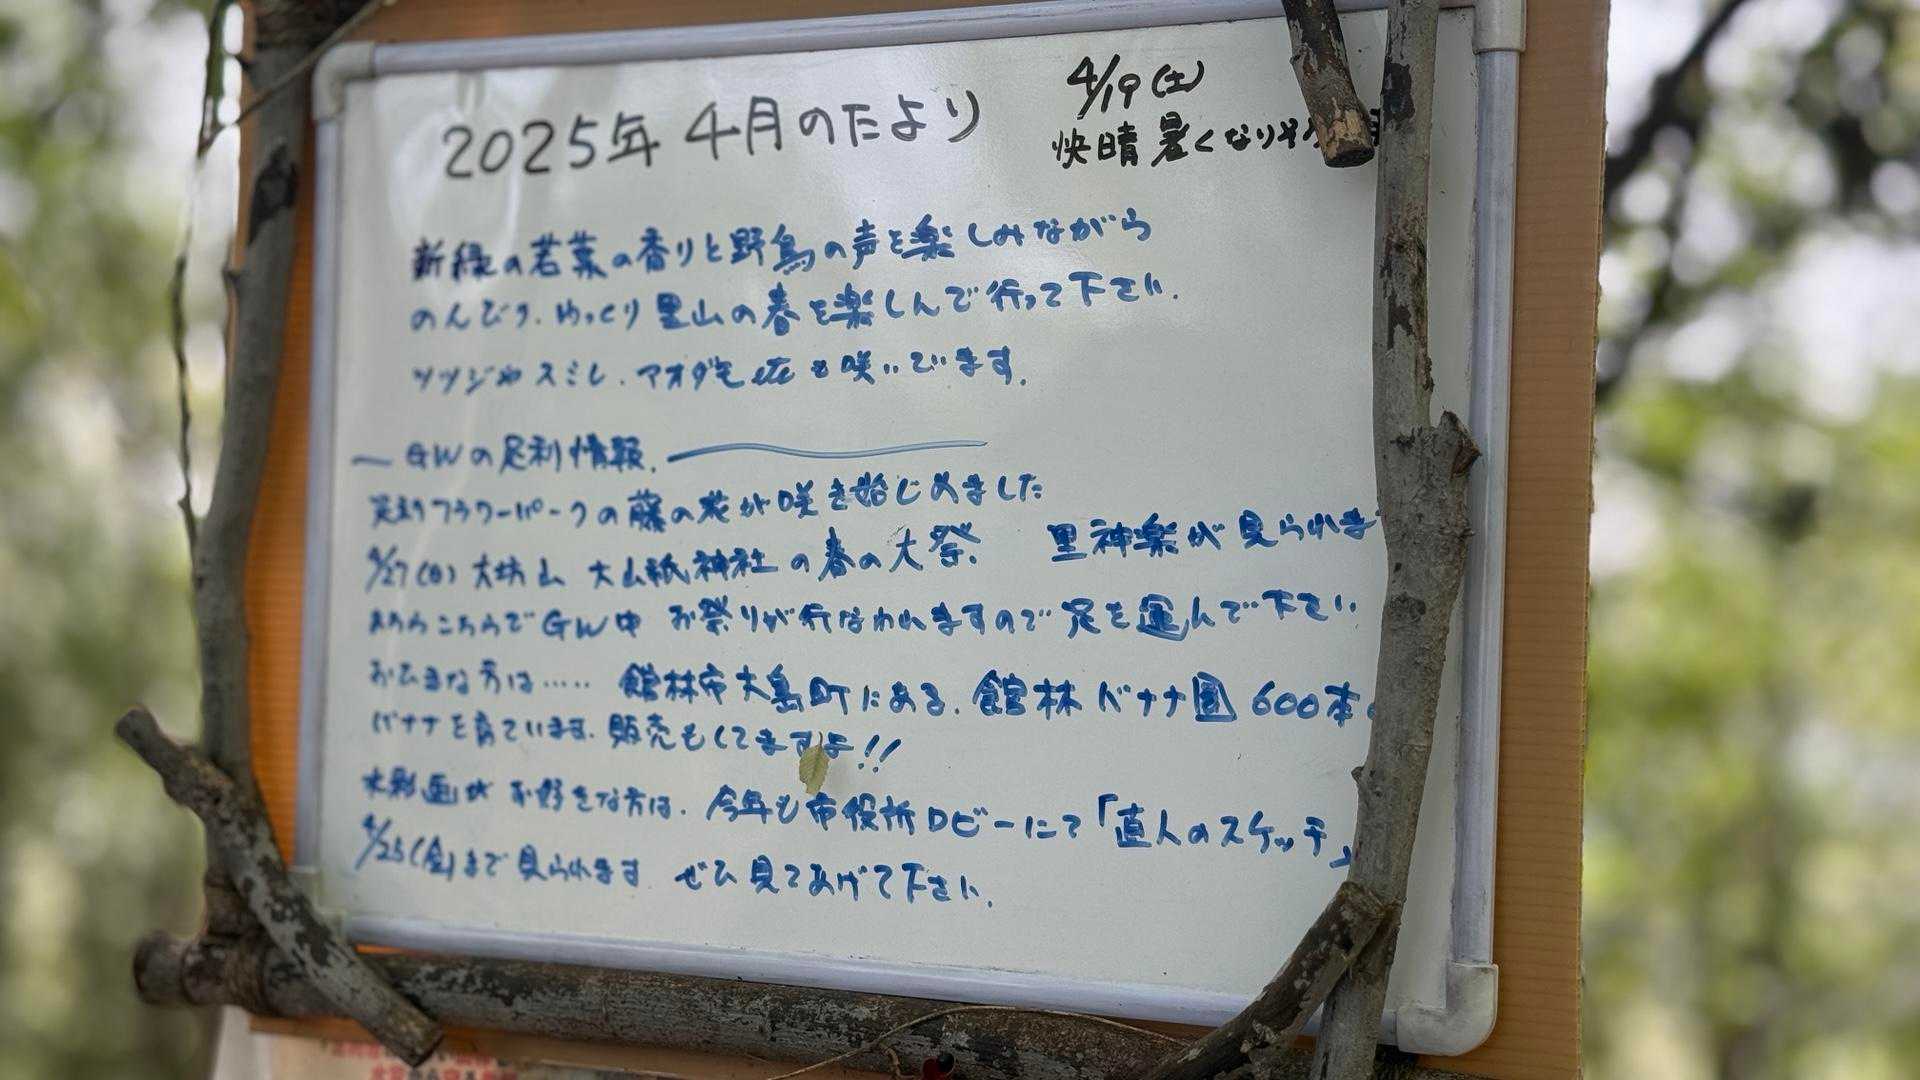 2025年 4月のたより
4/19(土)
快晴 暑くなりそう
新緑の若葉の香りと野鳥の声を楽しみながら
のんびり、ゆっくり里山の春を楽しんで行って下さい.
ツツジやスミレ、アオダモ etc も咲いています。
GWの足利情報.
足利フラワーパークの藤の花が咲き始じめました
4/27(日) 大坊山 大山祇神社の春の大祭. 里神楽が見られま
あちらこちらでGW中 お祭りが行なわれますので足を運んで下さい.
おひまな方は…‥ 館林市大島町にある. 館林バナナ園 600本
バナナを育ています. 販売もしてますよ!!
水彩画がお好きな方は. 今年も市役所ロビーにて「直人のスケッチ」
4/25(金)まで見られます ぜひ見てあげて下さい.